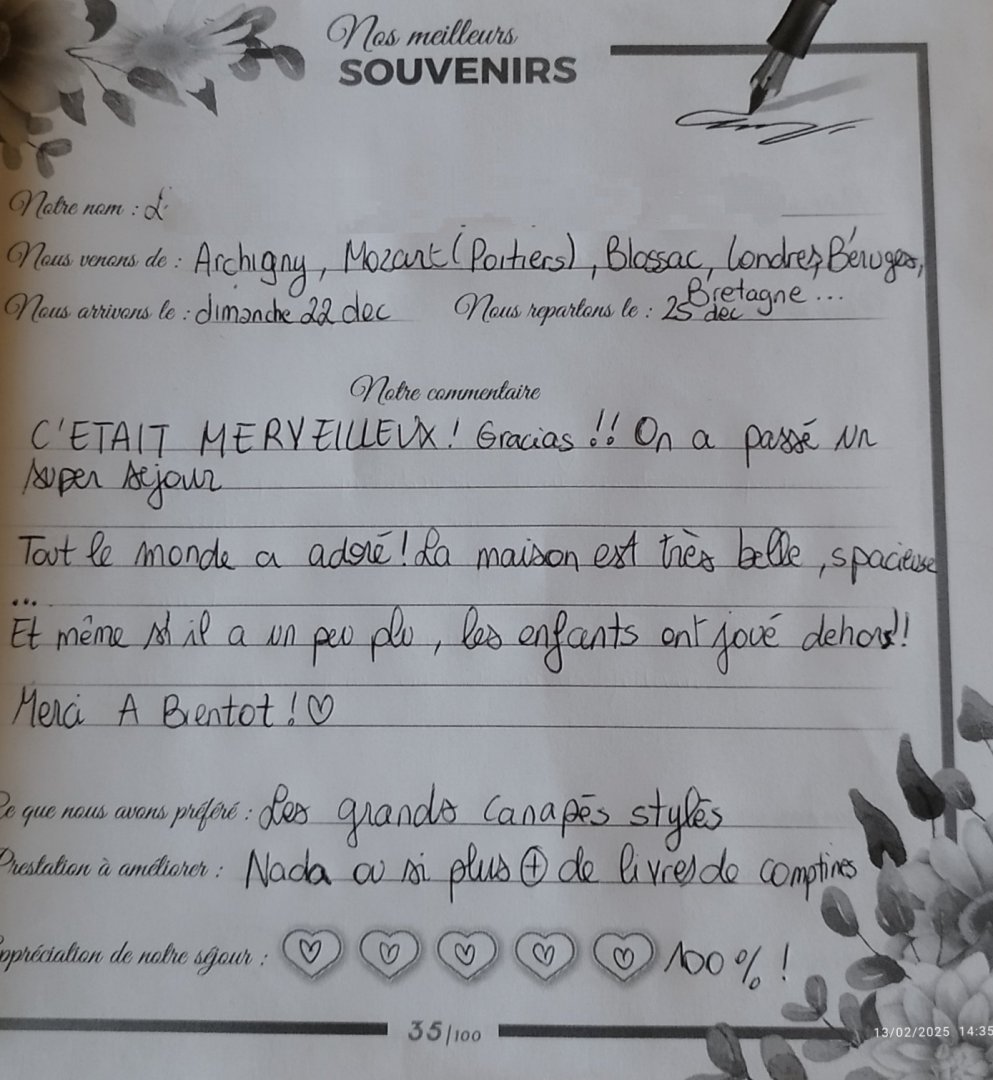 Nos meilleurs
SOUVENIRS
Notre nom : L
Nous venons de : Archigny, Mozart (Poitiers), Blossac, Londres, Béruges,
Bretagne ...
Nous arrivons le : dimanche 22 dec Nous repartons le : 25 dec
Notre commentaire
C'ETAIT MERVEILLEUX ! Gracias !! On a passé un
super séjour
Tout le monde a adoré ! La maison est très belle, spacieuse
...
Et même si il a un peu plu, les enfants ont joué dehors !
Merci A Bientot ! ♡
Ce que nous avons préféré : Les grands canapés stylés
Prestation à améliorer : Nada ou si plus ⊕ de livres de comptines
Appréciation de notre séjour : ♡ ♡ ♡ ♡ ♡ 100 % !
35/100
13/02/2025 14:35